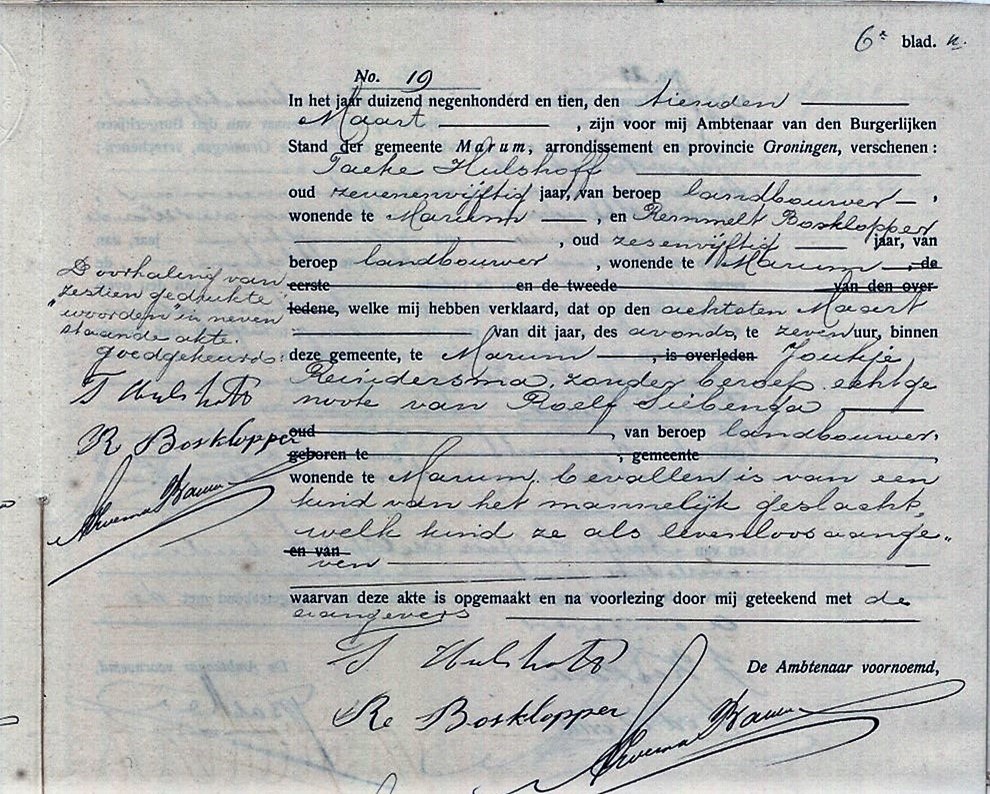 6e blad.
No. 19
In het jaar duizend negenhonderd en tien, den tienden
Maart , zijn voor mij Ambtenaar van den Burgerlijken
Stand der gemeente Marum, arrondissement en provincie Groningen, verschenen :
Taeke Hulshoff
oud zevenenvijftig jaar, van beroep landbouwer ,
wonende te Marum , en Remmelt Bosklopper
, oud zesenvijftig jaar, van
beroep landbouwer , wonende te Marum , de
eerste en de tweede van den over-
ledene, welke mij hebben verklaard, dat op den achtsten Maart
van dit jaar, des avonds, te zeven uur, binnen
deze gemeente, te Marum , is overleden Joukje
Reindersma, zonder beroep, echtge
noote van Roelf Siebenga
oud , van beroep landbouwer,
geboren te , gemeente
wonende te Marum, bevallen is van een
kind van het mannelijk geslacht,
welk kind ze als levenloos aange„
en van
ven
waarvan deze akte is opgemaakt en na voorlezing door mij geteekend met de
aangevers
T Hulshoff
De Ambtenaar voornoemd,
R Bosklopper
Doorhaling van
„zestien gedrukte
woorden" in neven
staande akte.
goedgekeurd:
T Hulshoff
R Bosklopper